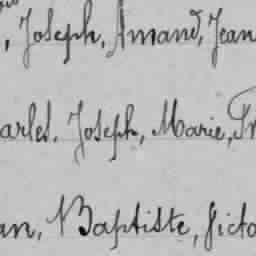 , Joseph, Amand, Jean
arles. Joseph, Marie, Fr
an, Baptiste, Victo